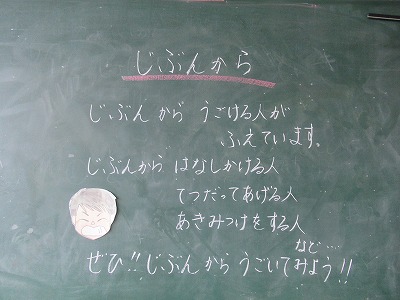 じぶんから
じぶん から うごける人が
ふえています。
じぶんから はなしかける人
てつだってあげる人
あきみつけをする人
など…
ぜひ!! じぶんから うごいてみよう!!